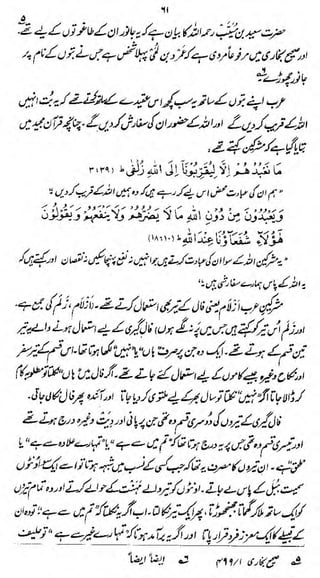 ۶۱
حضرت سعید بن مسیّب رحمہ اللہ کا بیان ہے کہ یہ جانور ان کے طاغوتوں کے لیے تھے۔
اور صحیح بخاری میں مرفوعاً مروی ہے کہ عمرو بن لحی پہلا شخص ہے جس نے بتوں کے نام پر
جانور چھوڑے
عرب اپنے بتوں کے ساتھ یہ سب کچھ اس عقیدے کے ساتھ کرتے تھے کہ یہ بت انہیں
اللہ کے قریب کر دیں گے اور اللہ کے حضور ان کی سفارش کر دیں گے۔ چنانچہ قرآن مجید میں
بتایا گیا ہے کہ مشرکین کہتے تھے،
مَا نَعْبُدُهُمْ إِلَّا لِيُقَرِّبُونَا إِلَى اللهِ زُلْفَىٰ ط (۳:۳۹)
"ہم ان کی عبادت محض اس لیے کر رہے ہیں کہ وہ ہمیں اللہ کے قریب کر دیں"
وَيَعْبُدُونَ مِنْ دُونِ اللهِ مَا لَا يَضُرُّهُمْ وَلَا يَنْفَعُهُمْ وَيَقُولُونَ
هَٰؤُلَاءِ شُفَعَاؤُنَا عِنْدَ اللهِ ط (۱۸:۱۰)
"یہ مشرکین اللہ کے سوا ان کی عبادت کرتے ہیں جو انہیں نہ نفع پہنچا سکیں نہ نقصان اور کہتے ہیں کہ
یہ اللہ کے پاس ہمارے سفارشی ہیں"
مشرکینِ عرب ازلام یعنی فال کے تیر بھی استعمال کرتے تھے۔ (ازلام، زلم کی جمع ہے۔
اور زلم اُس تیر کو کہتے ہیں جس میں پَر نہ لگے ہوں) فال گیری کے لیے استعمال ہونے والے یہ تیر
تین قسم کے ہوتے تھے۔ ایک وہ جن پر صرف "ہاں" یا "نہیں" لکھا ہوتا تھا۔ اس قسم کے تیر سفر
اور نکاح وغیرہ جیسے کاموں کے لیے استعمال کئے جاتے تھے۔ اگر فال میں "ہاں" نکلتا تو مطلوبہ کام
کر ڈالا جاتا اگر "نہیں" نکلتا تو سال بھر کے لیے ملتوی کر دیا جاتا اور آئندہ پھر فال نکالی جاتی۔
فال گیری کے تیروں کی دوسری قسم وہ تھی جن پر پانی اور دِیَت وغیرہ درج ہوتے تھے
اور تیسری قسم وہ تھی جس پر یہ درج ہوتا تھا کہ "تم میں سے ہے" یا "تمہارے علاوہ سے ہے" یا
"ملحق" ہے۔ ان تیروں کا مصرف یہ تھا کہ جب کسی کے نسب میں شبہہ ہوتا تو اسے سو اونٹوں
سمیت ہُبل کے پاس لے جاتے۔ اونٹوں کو تیر والے مہنت کے حوالے کرتے اور وہ تمام تیروں
کو ایک ساتھ ملا کر گھماتا جھنجھوڑتا، پھر ایک تیر نکالتا۔ اب اگر یہ نکلتا کہ "تم میں سے ہے" تو وہ ان
کے قبیلے کا ایک معزز فرد قرار پاتا اور اگر یہ برآمد ہوتا کہ "تمہارے غیر سے ہے" تو حلیف
صحیح بخاری ۴۹۹/۱ ایضاً ایضاً